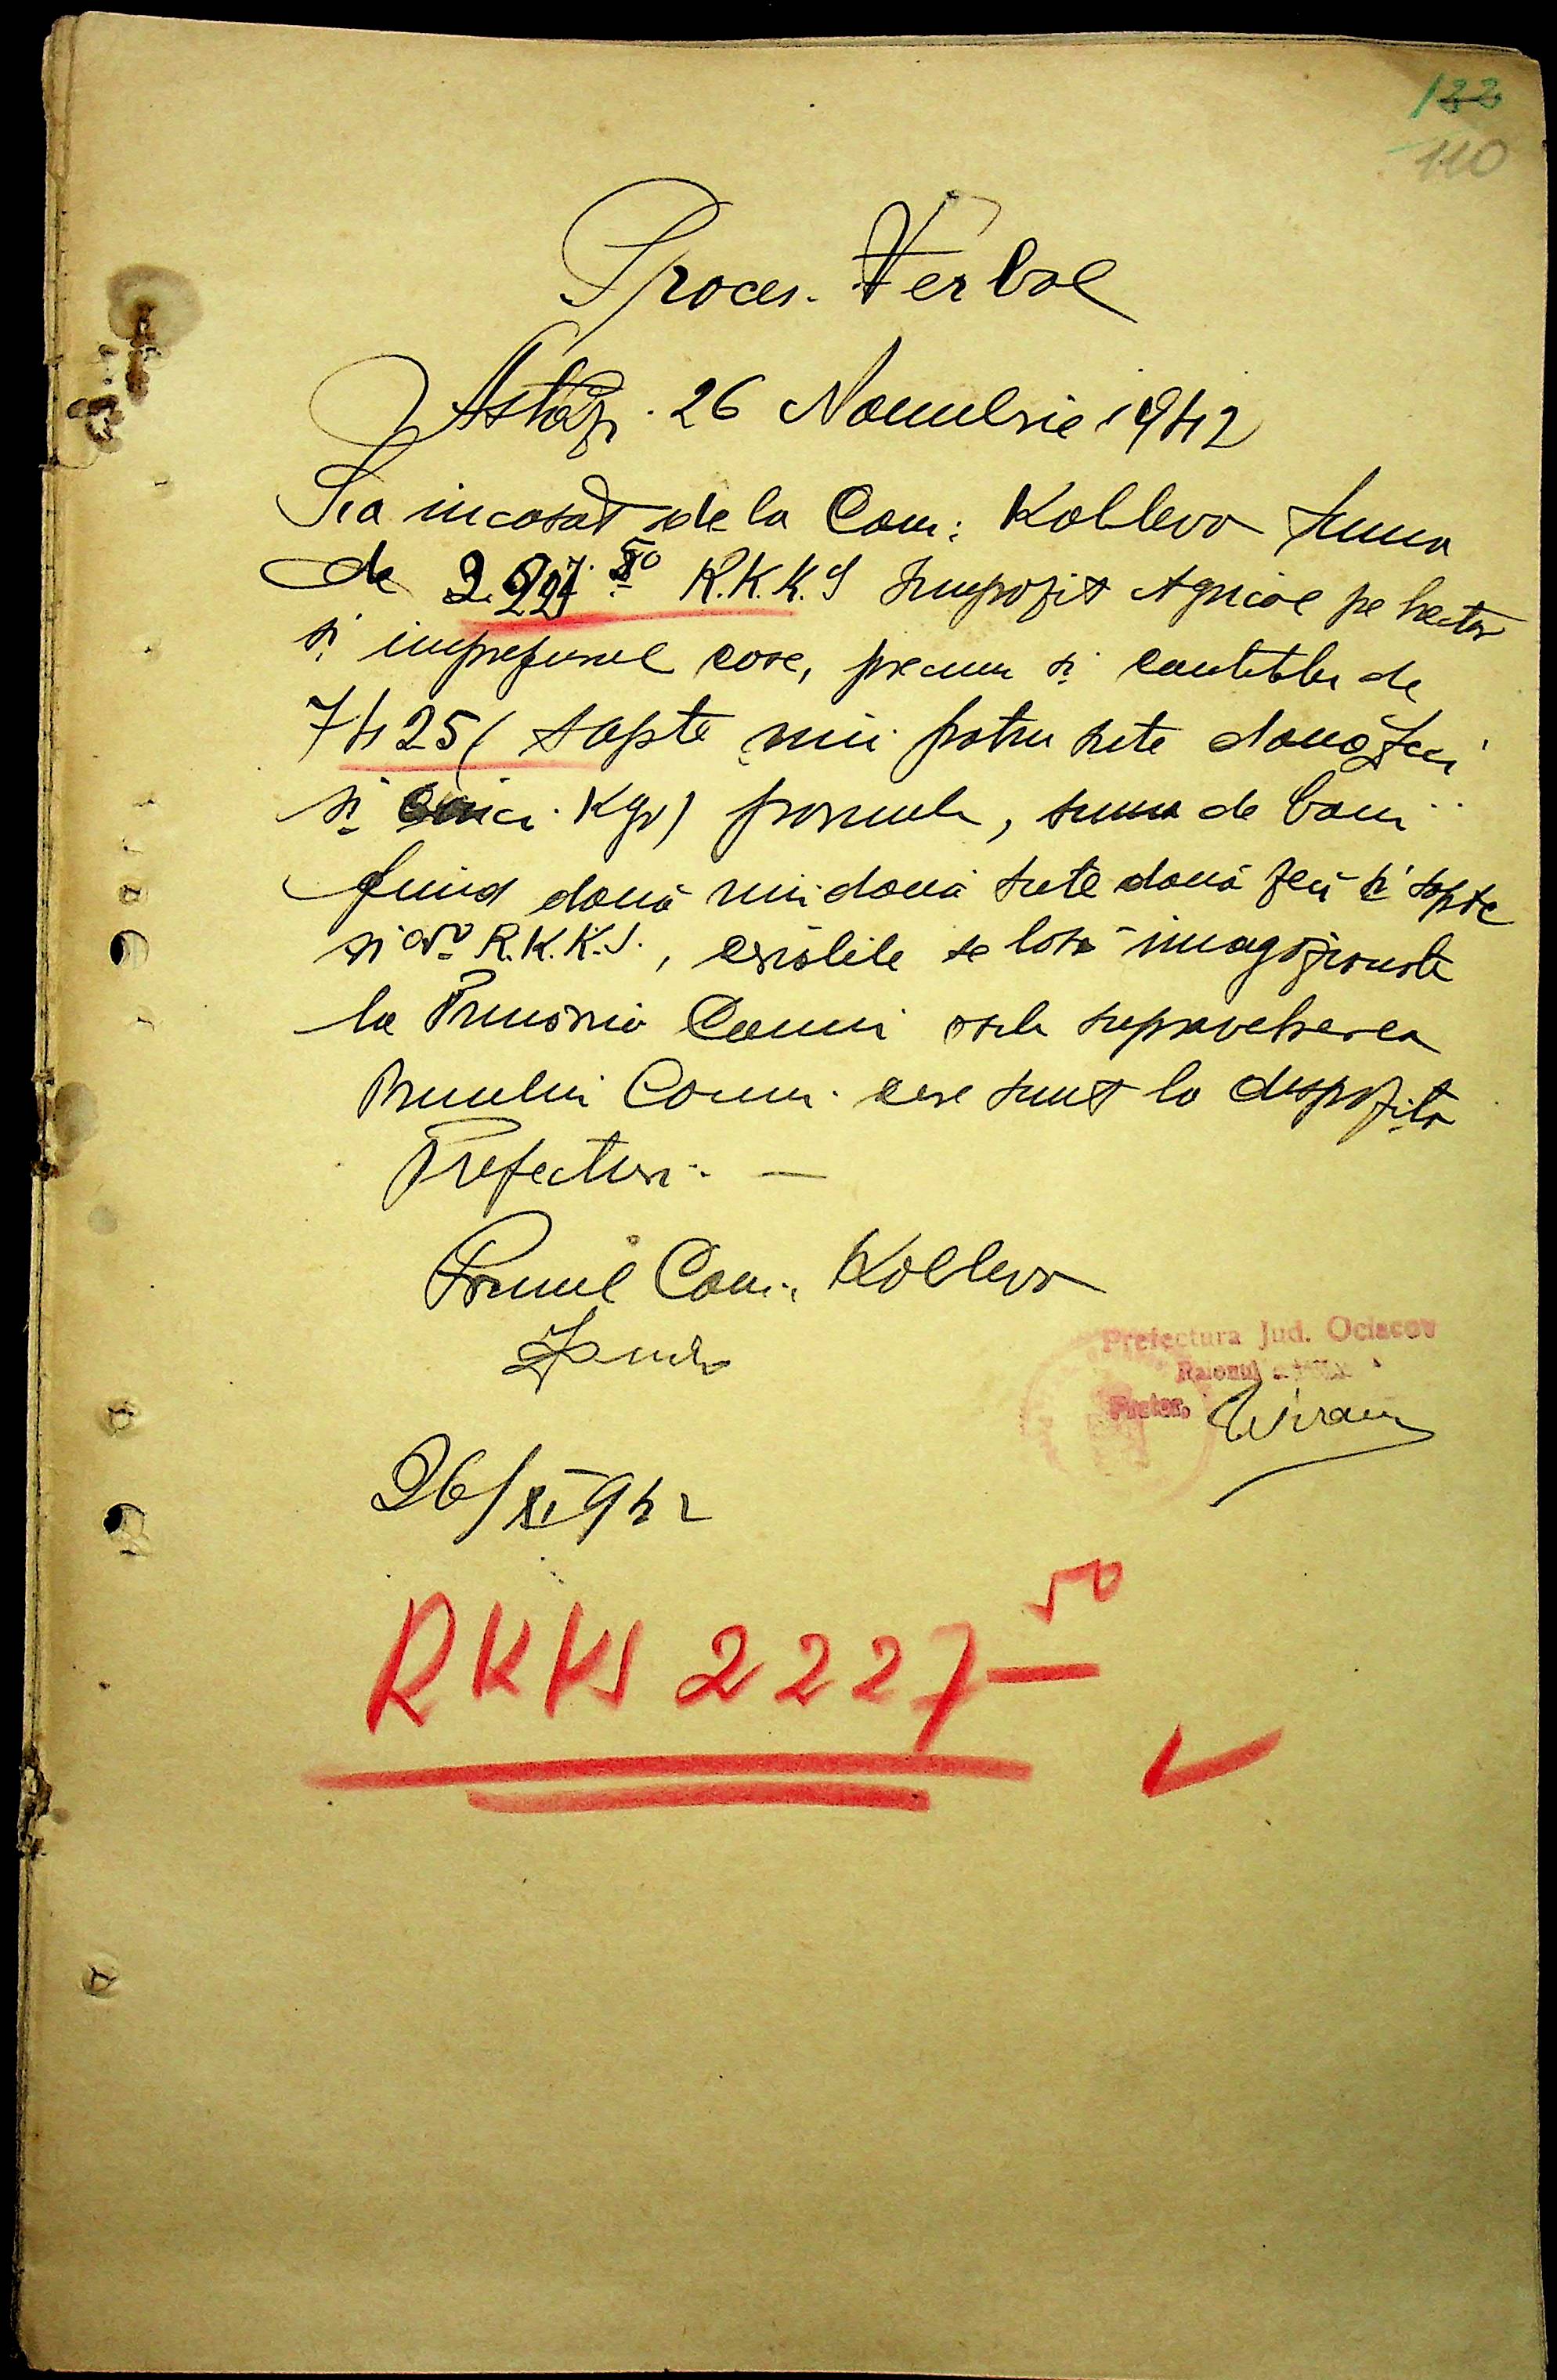 122
110
Proces. Verbal
Astăzi. 26 Noembrie 1942
S'a incasat de la Com: Koblevo suma
de 2.227.50 R.K.K.S Impozit Agricol pe hectar
si impozitul case, precum si cantitatea de
7425 ( sapte mii patru sute două zeci
si cinci Kgr) porumb, suma de bani
fiind două mii două sute două zeci si sapte
si 50 R.K.K.S., cerialele se lasă imagazinate
la Primăria Comuni sub supravegherea
Primului Comun. care sunt la dispozitia
Prefecturi. —
Primul Com. Koblevo
Prefectura Jud. Oceacov
Raionul
Pretor,
26/XI 942
RKKS 2227 50